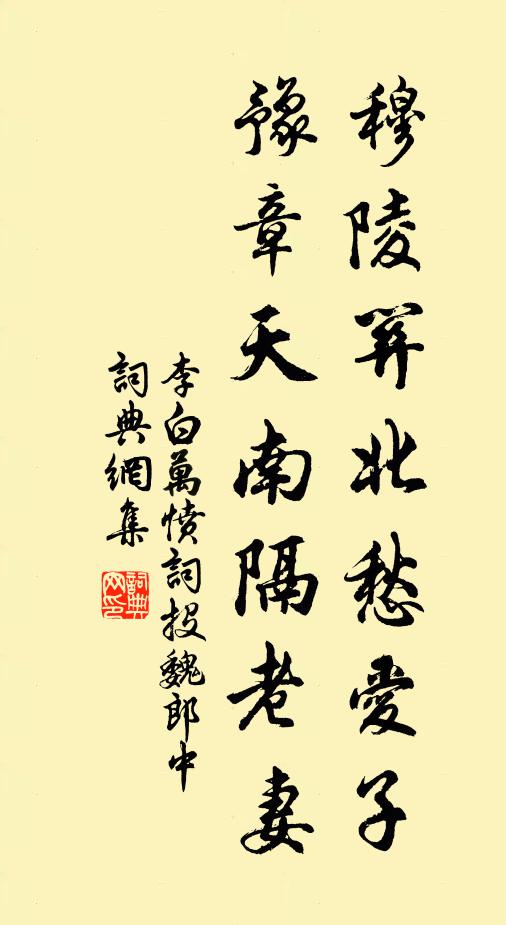 穆陵關北愁愛子
豫章天南隔老妻
李白萬憤詞投魏郎中
詞典網集
詞典網印